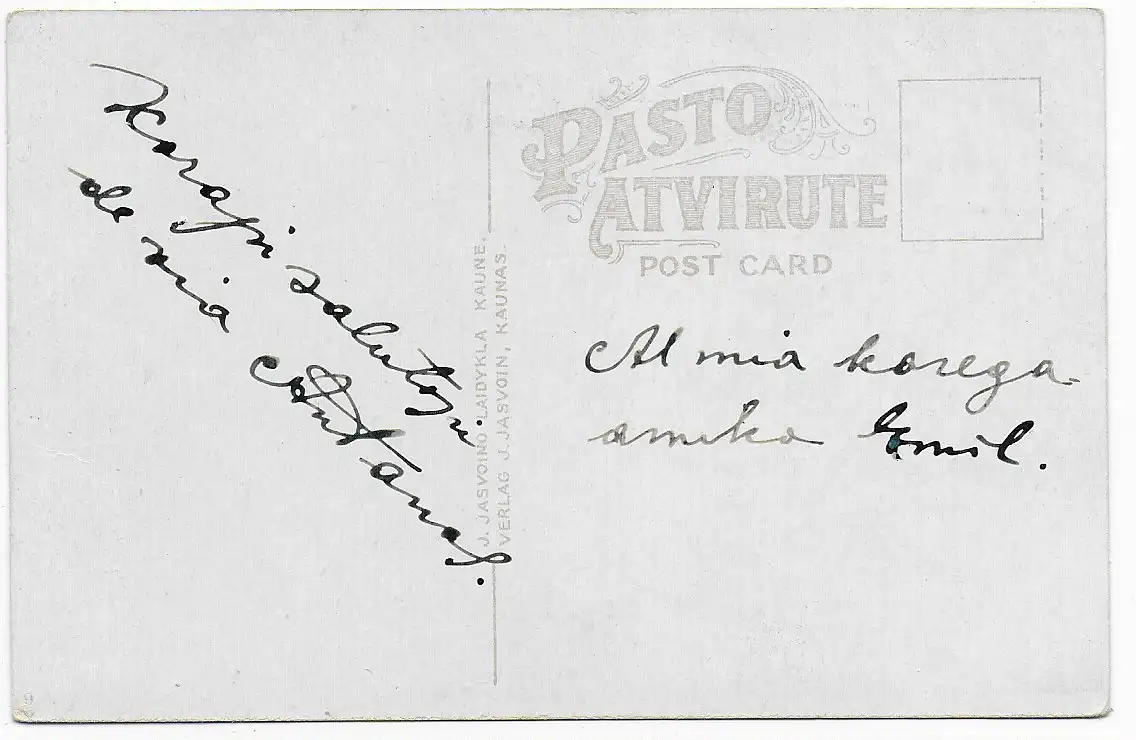 Korajn salutojn
de via Antanas.
J. JASVOINO LAIDYKLA KAUNE.
VERLAG J. JASVOIN, KAUNAS.
PASTO
ATVIRUTE
POST CARD
Al mia korega
amiko Emil.